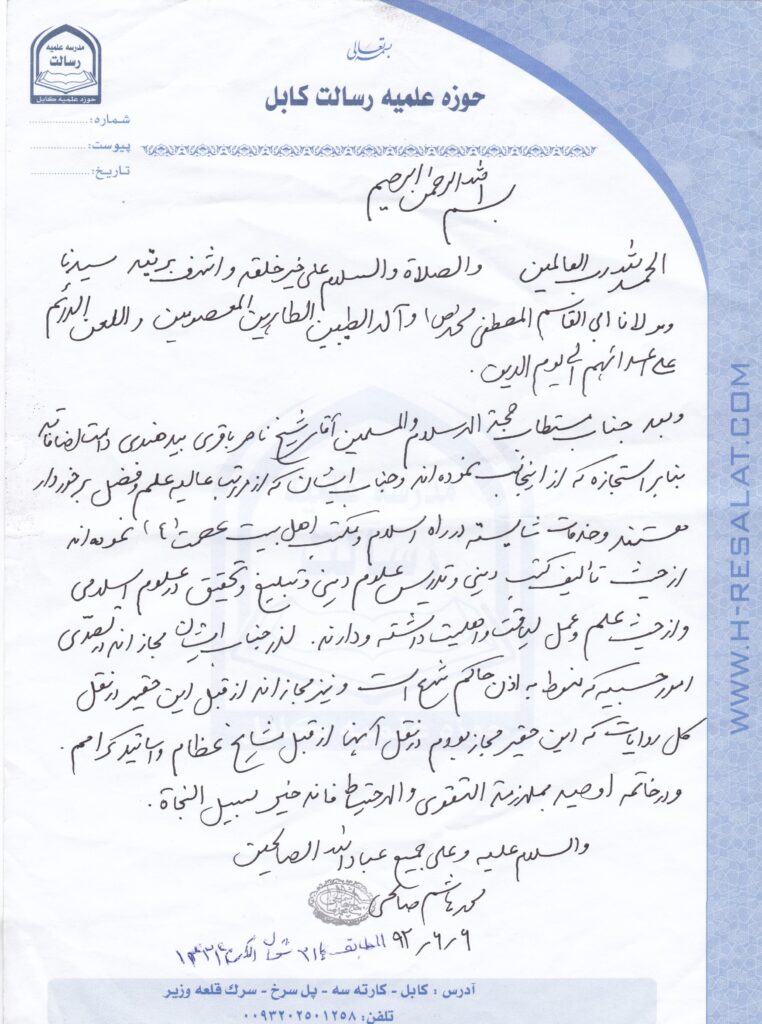 بسمه تعالی
مدرسه علمیه
رسالت
حوزه علمیه کابل
حوزه علمیه رسالت کابل
شماره:
پیوست:
تاریخ:
بسم الله الرحمن الرحیم
الحمد لله رب العالمین والصلاة والسلام علی خیر خلقه و اشرف بریته سیدنا
ومولانا ابی القاسم المصطفی محمد (ص) وآله الطیبین الطاهرین المعصومین و اللعن الدائم
علی اعدائهم الی یوم الدین.
وبعد جناب مستطاب حجة الاسلام والمسلمین آقای شیخ ناصر باقری بیدهندی دامت افاضاته
بنابر استجازه که از اینجانب نموده اند وجناب ایشان که از مراتب عالیه علم وفضل برخوردار
هستند وخدمات شایسته در راه اسلام ومکتب اهل بیت عصمت (ع) نموده اند
از حیث تألیف کتب دینی وتدریس علوم دینی وتبلیغ وتحقیق در علوم اسلامی
واز حیث علم وعمل لیاقت واهلیت داشته ودارند. لذا جناب ایشان مجازاند در تصدّی
امور حسبیه که منوط به اذن حاکم شرع است ونیز مجازاند از قبل این حقیر در نقل
کل روایات که این حقیر مجاز بودم در نقل آنها از قبل مشایخ عظام واساتید کرامم.
ودر خاتمه اوصیه بملازمة التقوی والاحتیاط فانه خیر سبیل النجاة.
والسلام علیه وعلی جمیع عباد الله الصالحین
محمد هاشم صالحی
۹۲/۶/۹ المطابق ۲۱ شوال المکرم ۱۴۳۴
WWW.H-RESALAT.COM
آدرس : کابل - کارته سه - پل سرخ - سرک قلعه وزیر
تلفن: ۰۰۹۳۲۰۲۵۰۱۲۵۸